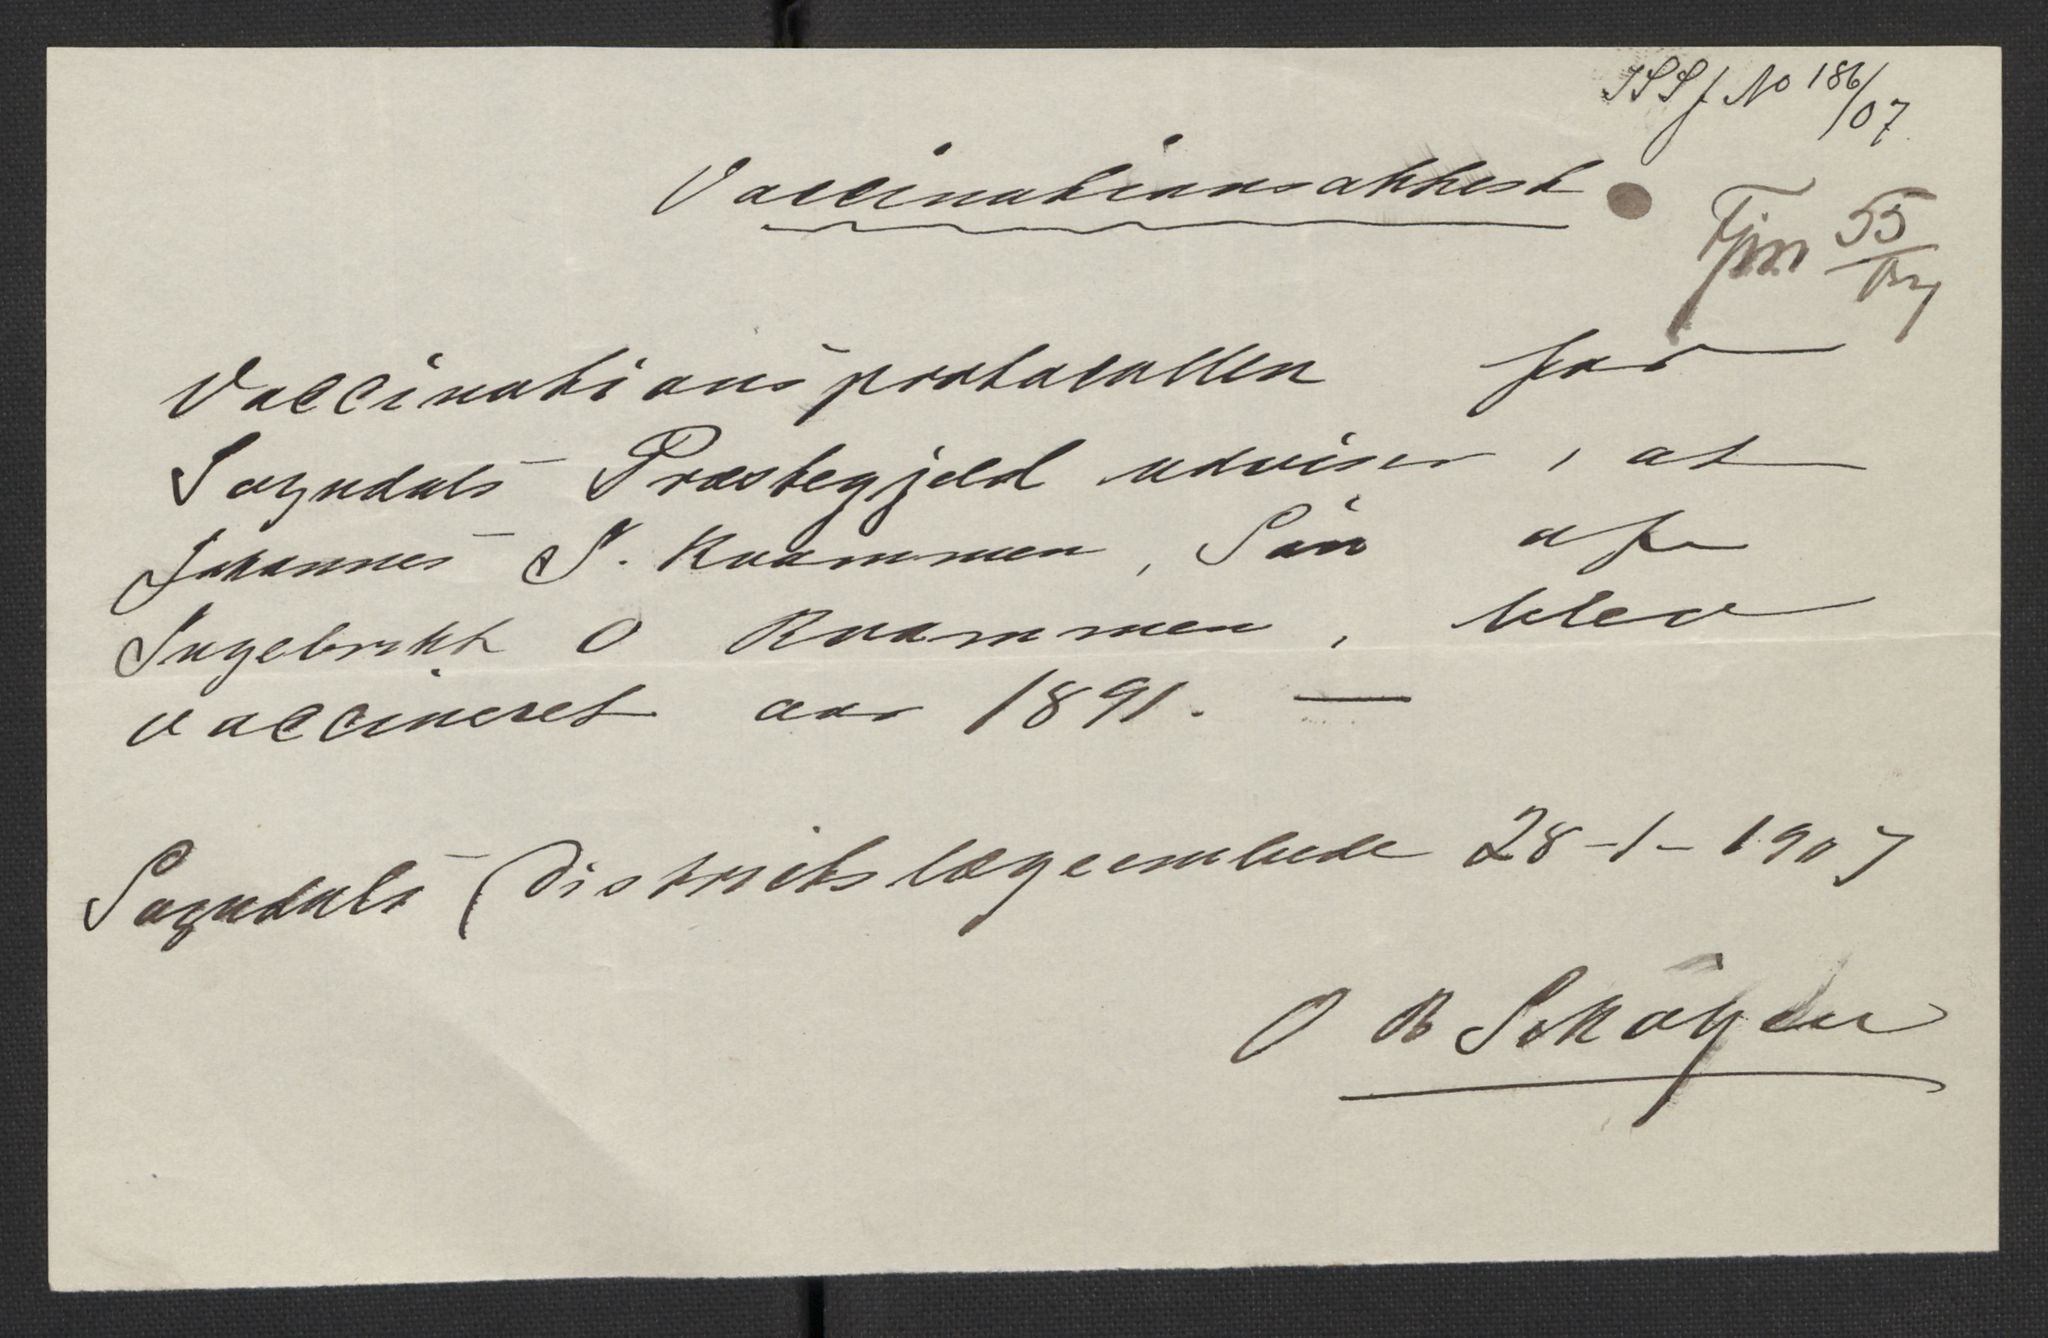 J No 186/07
Vaccinationsattest
Fjm 55/07
Vaccinationsprotocollen for
Sogndals Præstegjeld udviser, at
Johannes I. Kvammen, Sön af
Ingebrikt O Kvammen, blev
vaccineret aar 1891. —
Sogndals Distriktslægeembede 28-1-1907
O B Schøyen